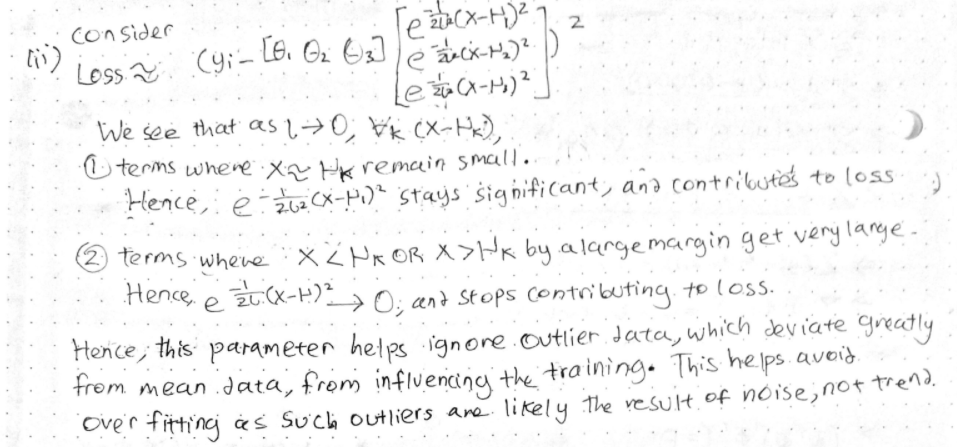 (ii) consider
Loss ≈ (yi - [θ1 θ2 θ3] [e^{-1/2l²(x-μ1)²} e^{-1/2l²(x-μ2)²} e^{-1/2l²(x-μ3)²}])²
We see that as l→0, ∀k (x-μk),
① terms where x≈μk remain small.
Hence, e^{-1/2l²(x-μ1)²} stays significant, and contributes to loss
② terms where x<μk OR x>μk by a large margin get very large.
Hence, e^{-1/2l²(x-μ)²} → 0, and stops contributing to loss.
Hence, this parameter helps ignore outlier data, which deviate greatly
from mean data, from influencing the training. This helps avoid
over fitting as such outliers are likely the result of noise, not trend.